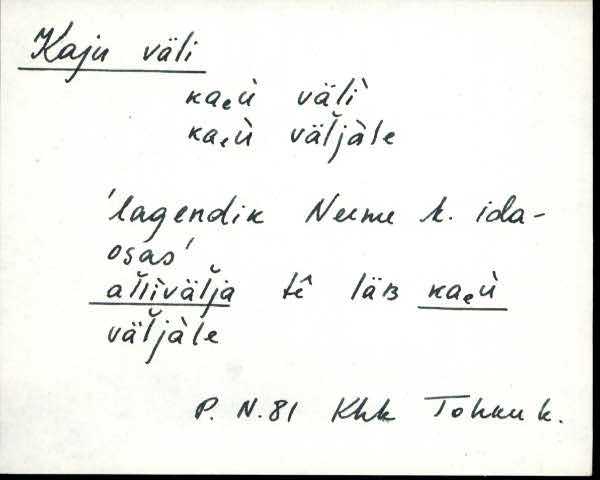 Kaju väli
kaₑù väľì
kaₑù väľjàle
'lagendik Neeme k. ida-
osas'
aľľìväľja tê läʙ kaₑù
väľjàle
P. N. 81 Khk Tohku k.